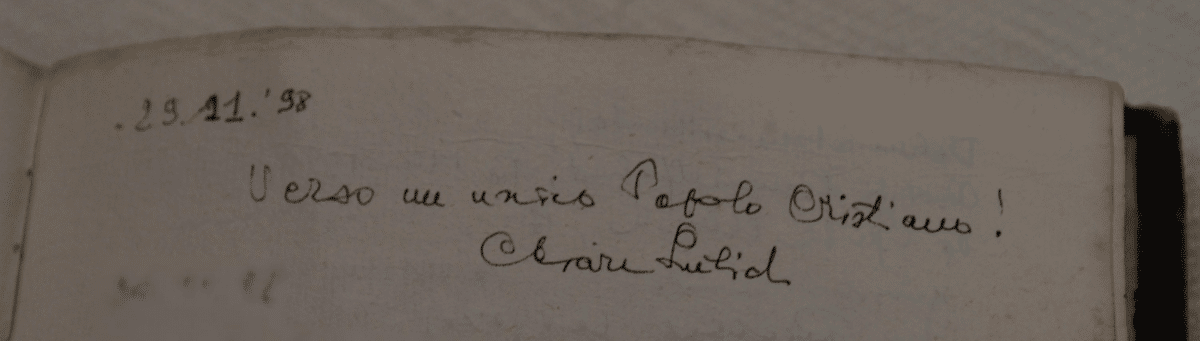 .29.11.'98
Verso un unico Popolo Cristiano!
Chiara Lubich